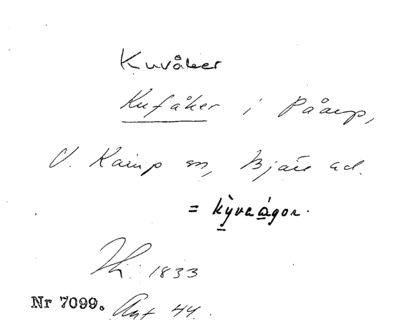 Kuvåker
Kufåker i Påarp,
V. Karup sn, Bjäre hd.
= kyvaågor.
1833
Nr 7099. Ant 44.